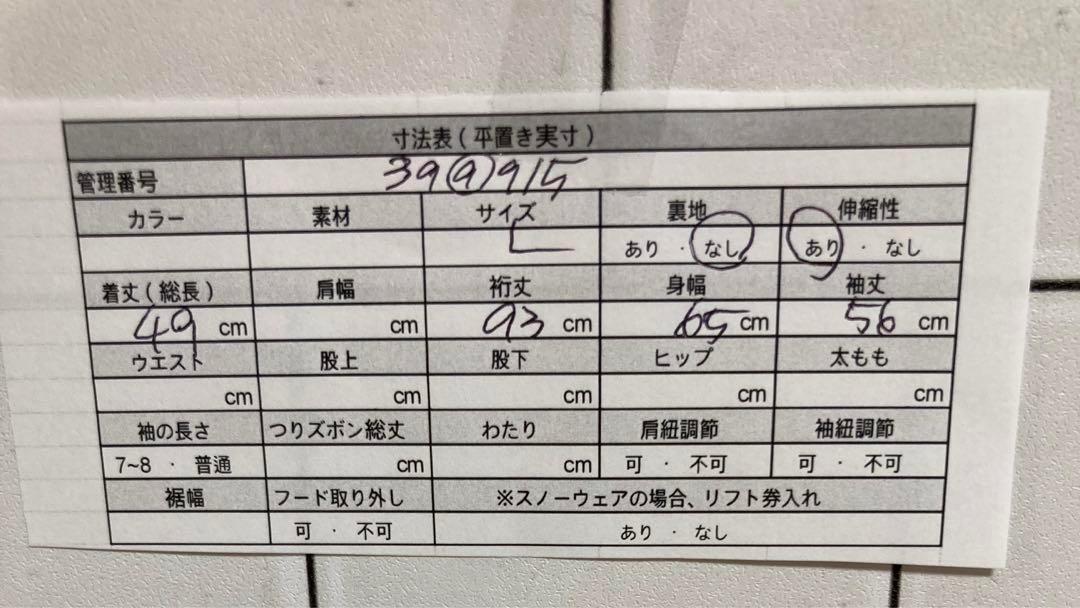 寸法表(平置き実寸)
管理番号 39(9)915
カラー 素材 サイズ 裏地 伸縮性
L あり ・ なし あり ・ なし
着丈(総長) 肩幅 裄丈 身幅 袖丈
49 cm cm 93 cm 65 cm 56 cm
ウエスト 股上 股下 ヒップ 太もも
cm cm cm cm cm
袖の長さ つりズボン総丈 わたり 肩紐調節 袖紐調節
7~8 ・ 普通 cm cm 可 ・ 不可 可 ・ 不可
裾幅 フード取り外し ※スノーウェアの場合、リフト券入れ
可 ・ 不可 あり ・ なし